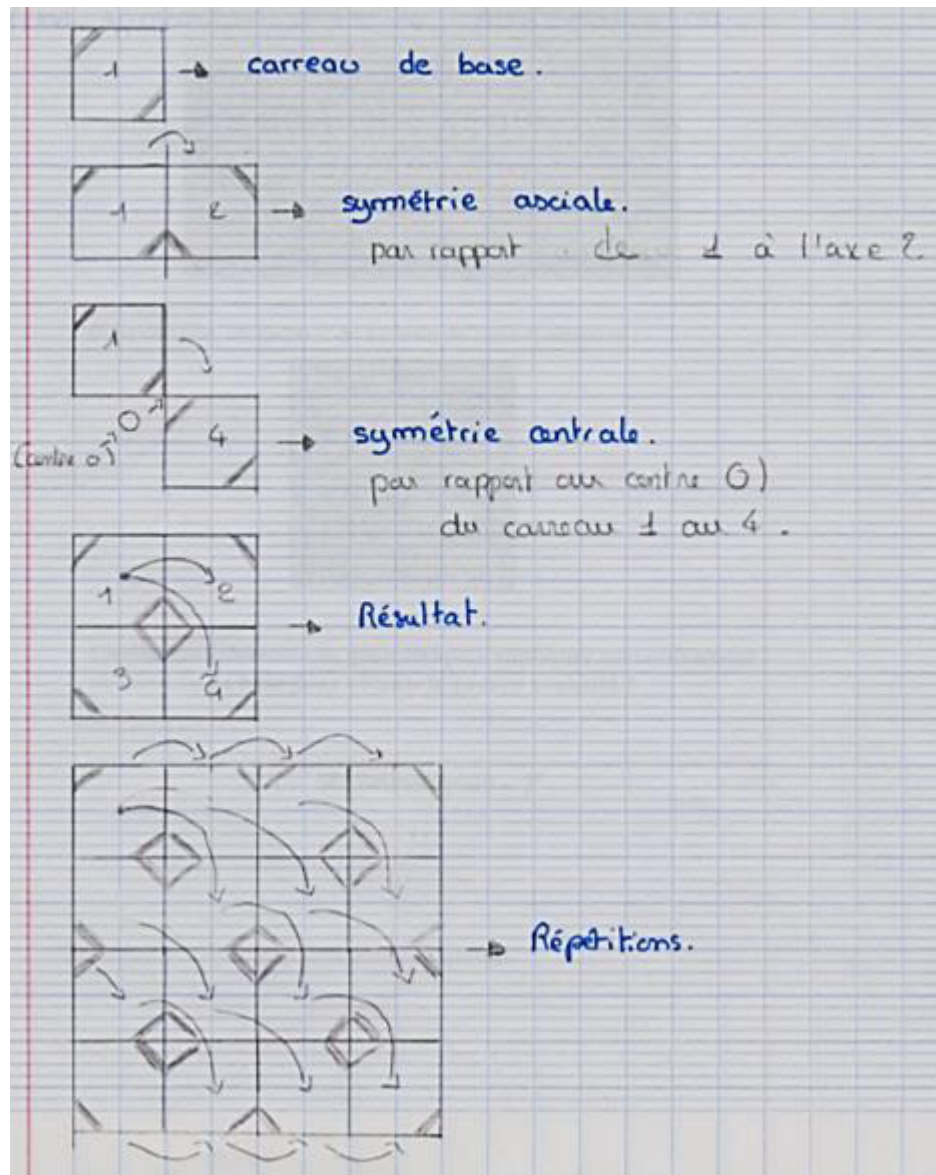 1 → carreau de base.
1 2 → symétrie asciale.
par rapport de 1 à l'axe 2
1
O
(centre o) 4 → symétrie centrale.
par rapport au centre O)
du carreau 1 au 4.
1 2
→ Résultat.
3 4
→ Répétitions.